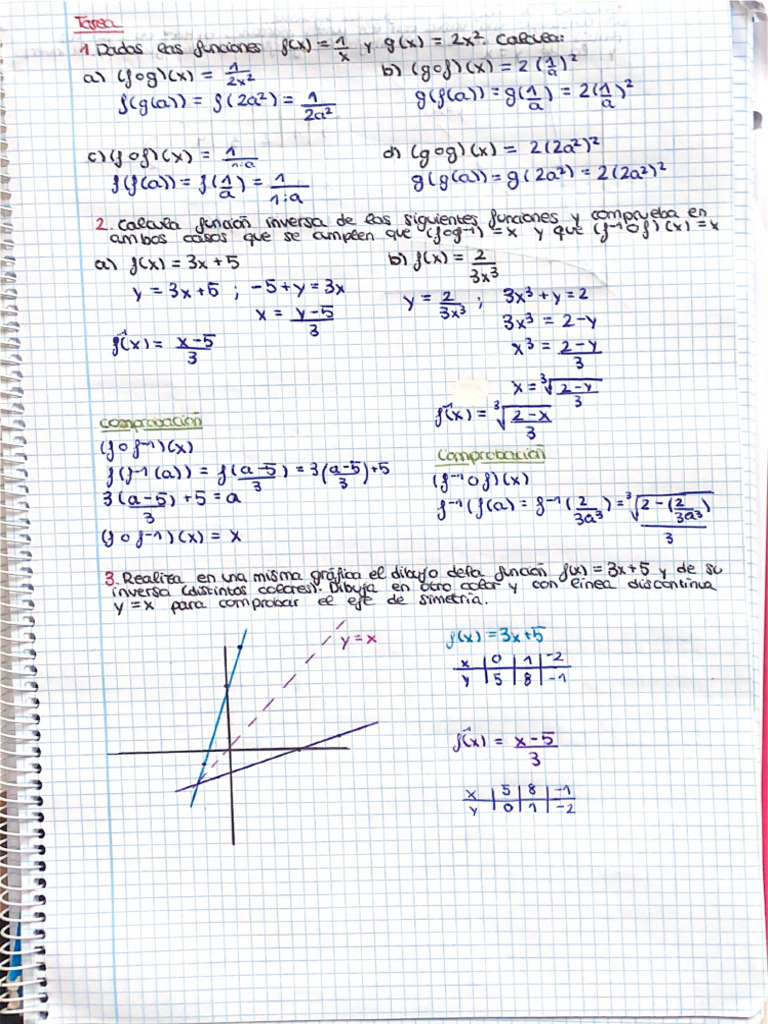 Tarea
1. Dadas las funciones f(x) = 1/x y g(x) = 2x². Calcula:
a) (f∘g)(x) = 1/2x²
f(g(a)) = f(2a²) = 1/2a²
b) (g∘f)(x) = 2(1/a)²
g(f(a)) = g(1/a) = 2(1/a)²
c) (f∘f)(x) = 1/1:a
f(f(a)) = f(1/a) = 1/1:a
d) (g∘g)(x) = 2(2a²)²
g(g(a)) = g(2a²) = 2(2a²)²
2. Calcula función inversa de las siguientes funciones y comprueba en
ambos casos que se cumplen que (f∘f⁻¹) = x y que (f⁻¹∘f)(x) = x
a) f(x) = 3x + 5
y = 3x + 5 ; -5 + y = 3x
x = y-5/3
f⁻¹(x) = x-5/3
Comprobación
(f∘f⁻¹)(x)
f(f⁻¹(a)) = f(a-5/3) = 3(a-5/3) + 5
3(a-5)/3 + 5 = a
(f∘f⁻¹)(x) = x
b) f(x) = 2/3x³
y = 2/3x³ ; 3x³ + y = 2
3x³ = 2 - y
x³ = 2-y/3
x = ³√2-y/3
f⁻¹(x) = ³√2-x/3
Comprobación
(f⁻¹∘f)(x)
f⁻¹(f(a) = f⁻¹(2/3a³) = ³√2-(2/3a³)/3
3. Realiza en una misma gráfica el dibujo de la función f(x) = 3x + 5 y de su
inversa (distintos colores). Dibuja en otro color y con línea discontinua
y = x para comprobar el eje de simetría.
y = x
f(x) = 3x + 5
x | 0 | 1 | -2
y | 5 | 8 | -1
f⁻¹(x) = x-5/3
x | 5 | 8 | -1
y | 0 | 1 | -2